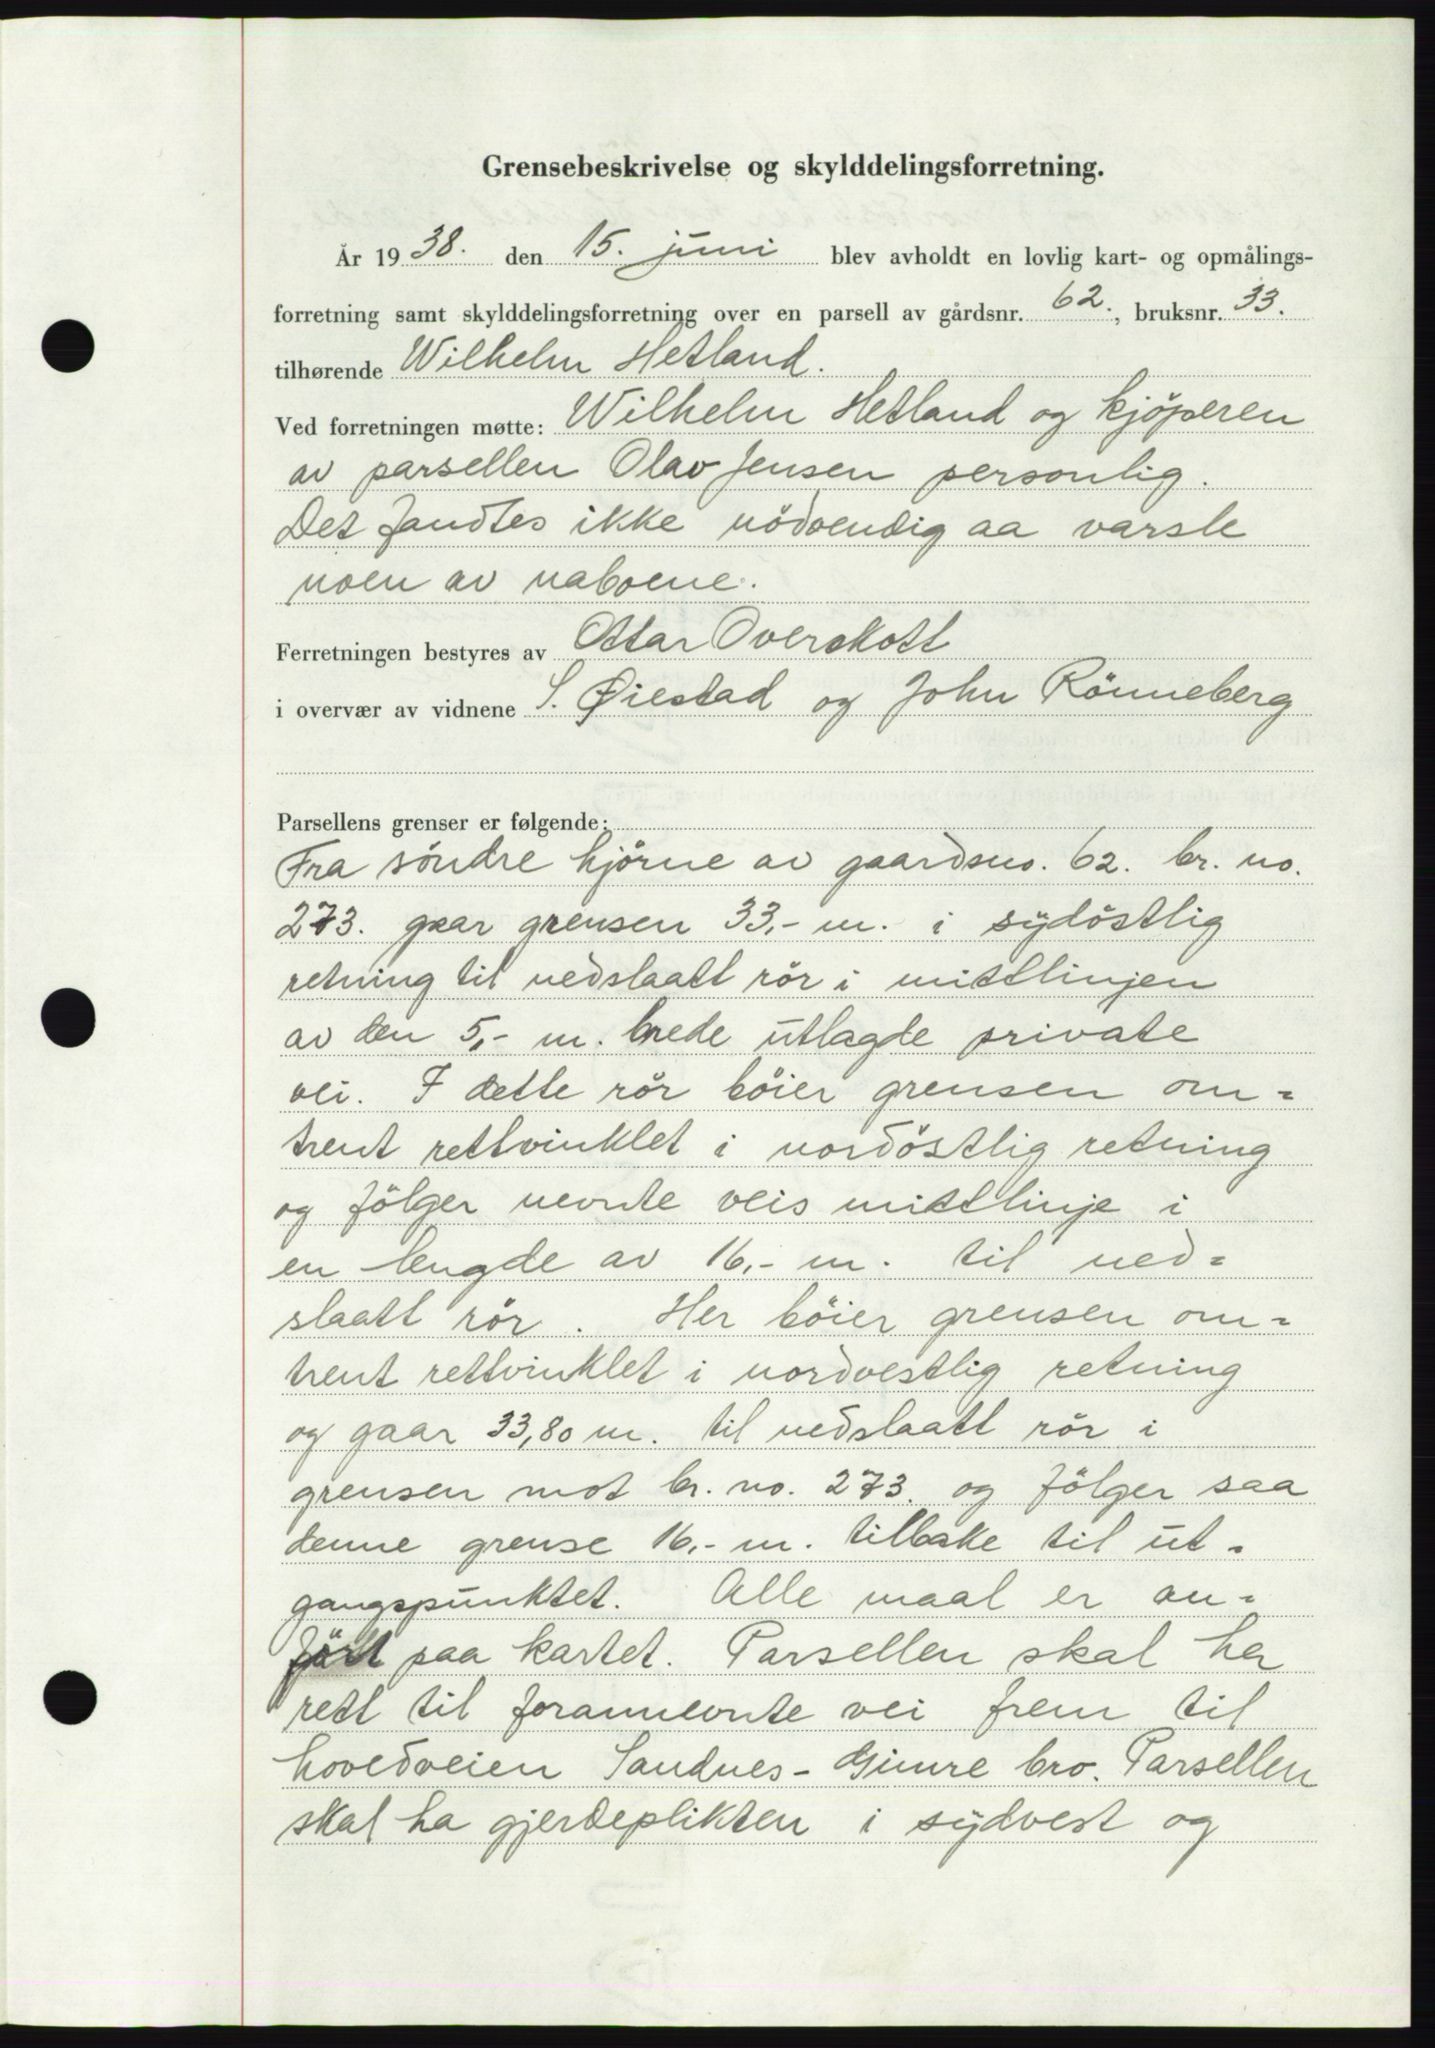 Grensebeskrivelse og skylddelingsforretning.
År 1938. den 15. juni blev avholdt en lovlig kart- og opmålings-
forretning samt skylddelingsforretning over en parsell av gårdsnr. 62., bruksnr. 33.
tilhørende Wilhelm Hetland.
Ved forretningen møtte: Wilhelm Hetland og kjöperen
av parsellen Olav Jensen personlig.
Det fandtes ikke nödvendig aa varsle
noen av naboene.
Ferretningen bestyres av Ottar Overskott
i overvær av vidnene S. Øiestad og John Rönneberg
Parsellens grenser er følgende:
Fra söndre hjörne av gaardsno. 62. br. no.
273. gaar grensen 33,- m. i sydöstlig
retning til nedslaatt rör i mittlinjen
av den 5,- m. brede utlagde private
vei. I dette rör böier grensen om=
trent rettvinklet i nordöstlig retning
og fölger nevnte veis mittlinje i
en lengde av 16,- m. til ned=
slaatt rör. Her böier grensen om=
trent rettvinklet i nordvestlig retning
og gaar 33,80 m. til nedslaatt rör i
grensen mot br. no. 273. og fölger saa
denne grense 16,- m. tilbake til ut=
gangspunktet. Alle maal er an=
fört paa kartet. Parsellen skal ha
rett til forannevnte vei frem til
hovedveien Sandnes - Gimre bro. Parsellen
skal ha gjerdeplikten i sydvest og